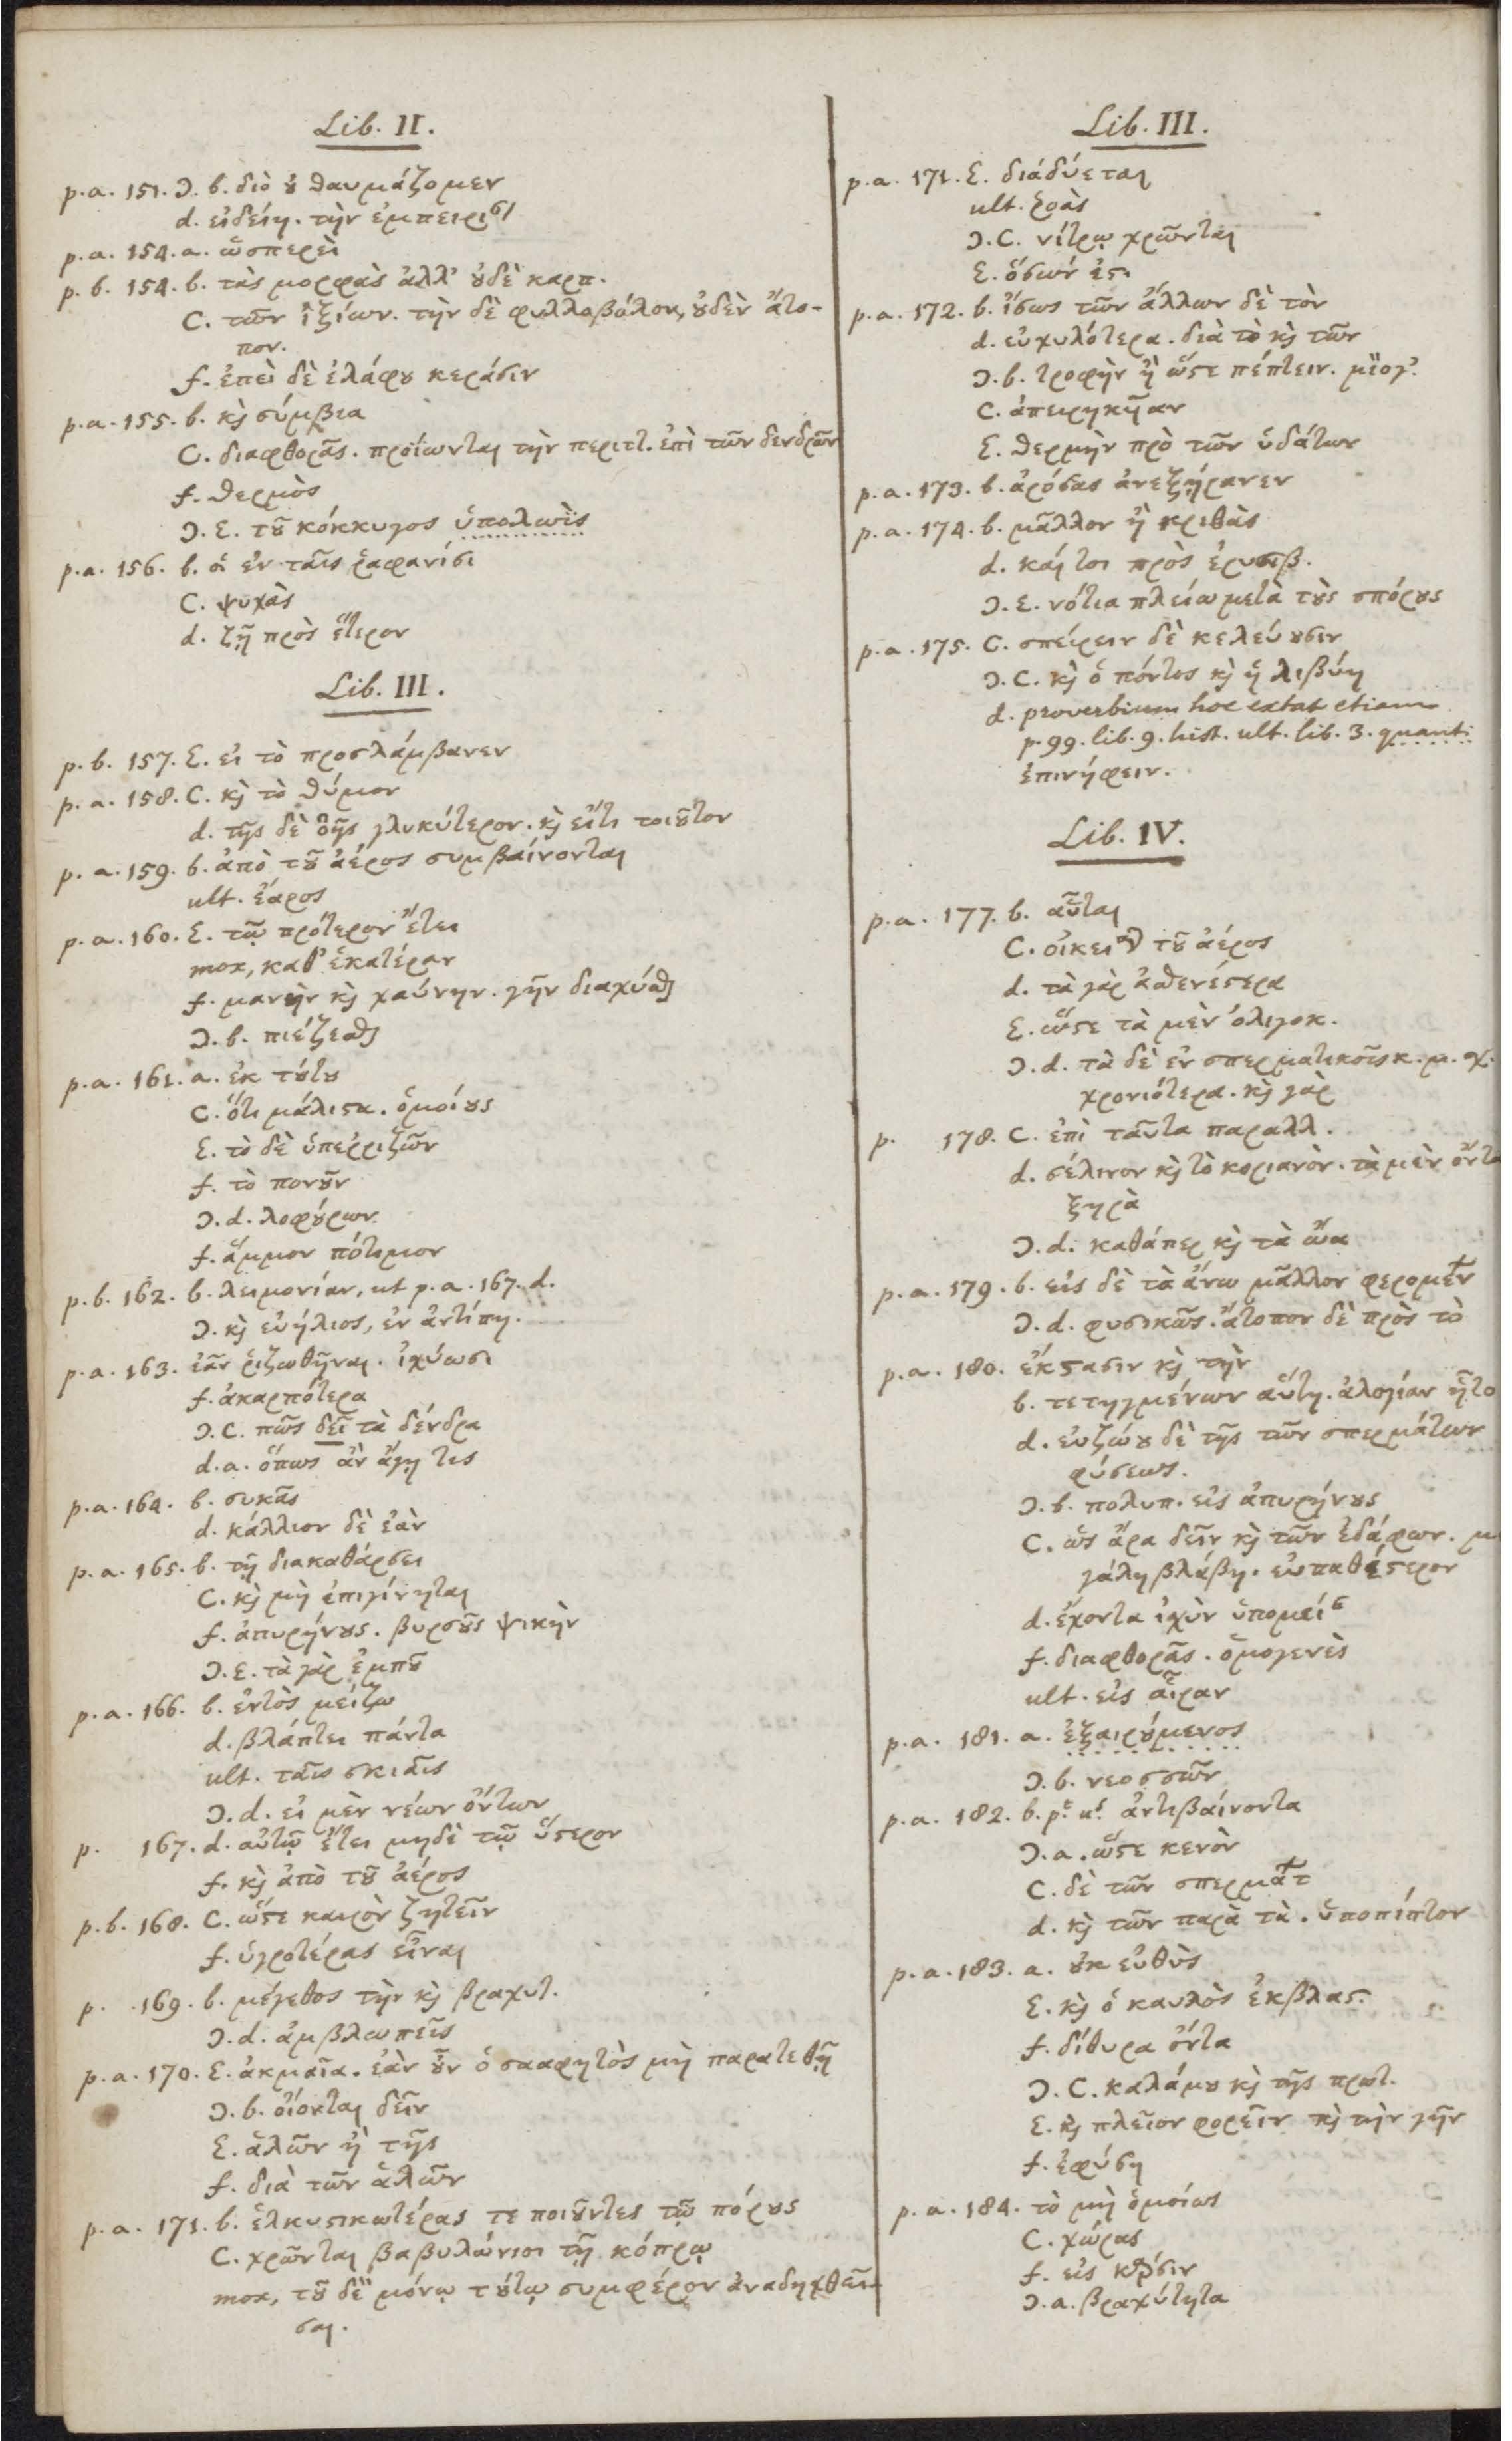 Lib. II.
p.a. 151. Ɔ. b. διὸ ȣ θαυμάζομεν
d. εἰδείη. τὴν ἐμπειρι
p.a. 154. a. ὥσπερεὶ
p. b. 154. b. τὰς μορφὰς ἀλλ' ȣδὲ καρπ.
C. τῶν ἰξίων. τὴν δὲ φυλλοβόλον, ȣδὲν ἄτο-
πον.
f. ἐπεὶ δὲ ἐλάφȣ κεράσιν
p.a. 155. b. κ̀ σύμβια
C. διαφθορᾶς. προΐωνται τὴν περιττ. ἐπὶ τῶν δενδρῶν
f. θερμὸς
Ɔ. Ɛ. τȣ͂ κόκκυγος ὑπολωὶς
p.a. 156. b. αἱ ἐν ταῖς ῥαφανίσι
C. ψυχὰς
d. ζῇ πρὸς ἕτερον
Lib. III.
p. b. 157. Ɛ. εἰ τὸ προσλάμβανεν
p. a. 158. C. κ̀ τὸ θύμον
d. τῆς δὲ ὄης γλυκύτερον. κ̀ εἴτι τοιȣ͂τον
p. a. 159. b. ἀπὸ τȣ͂ ἀέρος συμβαίνονται
ult. ἔαρος
p.a. 160. Ɛ. τῷ πρότερον ἔτει
mox, καθ' ἑκατέραν
f. μανὴν κ̀ χαύνην. γῆν διαχύσθαι
Ɔ. b. πιέζεσθαι
p.a. 161. a. ἐκ τȣ́τȣ
C. ὅτι μάλιϛα. ὁμοίȣς
Ɛ. τὸ δὲ ὑπερριζῶν
f. τὸ πονȣ͂ν
Ɔ. d. λοφȣ́ρων
f. ἄμμον πότιμον
p. b. 162. b. λειμονίαν, ut p.a. 167. d.
Ɔ. κ̀ εὐήλιος, ἐν ἀντίπη.
p.a. 163. ἐὰν ῥιζωθῆναι. ἰχύωσι
f. ἀκαρπότερα
Ɔ. C. πῶς δεῖ τὰ δένδρα
d. a. ὅπως ἀν ἄγη τις
p.a. 164. b. συκᾶς
d. κάλλιον δὲ ἐὰν
p.a. 165. b. τῇ διακαθάρσει
C. κ̀ μὴ ἐπιγίνηται
f. ἀπυρήνȣς. βυρσȣ͂ς ψικὴν
Ɔ. Ɛ. τὰ γὰρ ἐμπȣ͂
p.a. 166. b. ἐντὸς μείζω
d. βλάπτει πάντα
ult. ταῖς σκιαῖς
Ɔ. d. εἰ μὲν νέων ὄντων
p. 167. d. αὐτῷ ἔτει μηδὲ τῷ ὕϛερον
f. κ̀ ἀπὸ τȣ͂ ἀέρος
p. b. 168. C. ὥϛε καιρὸν ζητεῖν
f. ὑγροτέρας εἶναι
p. 169. b. μέγεθος τὴν κ̀ βραχυτ.
Ɔ. d. ἀμβλωπεῖς
p.a. 170. Ɛ. ἀκμαῖα. ἐὰν ȣ͂ν ὁ σααφητὸς μὴ παρατεθῇ
Ɔ. b. οἴονται δεῖν
Ɛ. ἁλῶν ἢ τῆς
f. διὰ τῶν ἁλῶν
p.a. 171. b. ἑλκυϛικωτέρας τε ποιȣ͂ντες τῷ πόρȣς
C. χρῶνται βαβυλώνιοι τῇ κόπρῳ
mox, τȣ͂ δὲ μόνῳ τȣ́τῳ συμφέρον ἀναδηχθεῖ-
σαι.
Lib. III.
p.a. 171. Ɛ. διάδύεται
ult. ῥοὰς
Ɔ. C. νίτρῳ χρῶνται
Ɛ. ὅσων ἐϛι
p.a. 172. b. ἴσως τῶν ἄλλων δὲ τὸν
d. εὐχυλότερα. διὰ τὸ κ̀ τῶν
Ɔ. b. τροφὴν ἢ ὥϛε πέπτειν. μῖογ.
C. ἀπειρηκῆαν
Ɛ. θερμὴν πρὸ τῶν ὑδάτων
p.a. 173. b. ἀρόσας ἀνεξήρανεν
p.a. 174. b. μᾶλλον ἢ κριθὰς
d. καί τοι πρὸς ἐρυσιβ.
Ɔ. Ɛ. νότια πλείω μετὰ τȣ̀ς σπόρȣς
p.a. 175. C. σπείρειν δὲ κελεύȣσιν
Ɔ. C. κ̀ ὁ πόντος κ̀ ἡ λιβύη
d. proverbium hoc extat etiam
p. 99. lib. 9. hist. ult. lib. 3. quanti
ἐπινήφειν.
Lib. IV.
p.a. 177. b. αὗται
C. οἰκει τȣ͂ ἀέρος
d. τὰ γὰρ ἀσθενέϛερα
Ɛ. ὥϛε τὰ μὲν ὀλιγοκ.
Ɔ. d. τὰ δὲ ἐν σπερματικοῖς κ. μ. χ.
χρονιότερα. κ̀ γὰρ
p. 178. C. ἐπὶ ταῦτα παραλλ.
d. σέλινον κ̀ τὸ κοριανὸν. τὰ μὲν ὄντα
ξηρὰ
Ɔ. d. καθάπερ κ̀ τὰ ὤα
p.a. 179. b. εἰς δὲ τὰ ἄνω μᾶλλον φερομέν
Ɔ. d. φυσικῶς. ἄτοπον δὲ πρὸς τὸ
p.a. 180. ἔκϛασιν κ̀ τὴν
b. τετηγμένων αὕτη. ἀλογίαν ἦτο
d. εὐζώȣ δὲ τῆς τῶν σπερμάτων
φύσεως.
Ɔ. b. πολυπ. εἰς ἀπυρήνȣς
C. ὡς ἄρα δεῖν κ̀ τῶν ἐδάφων. μ
γάλη βλάβη. εὐπαθέϛερον
d. ἔχοντα ἰχὺν ὑπομεί
f. διαφθορᾶς. ὁμογενὲς
ult. εἰς αἶραν
p.a. 181. a. ἐξαιρȣ́μενος
Ɔ. b. νεοσσῶν
p.a. 182. b. pe us ἀντιβαίνοντα
Ɔ. a. ὥϛε κενὸν
C. δὲ τῶν σπερμάτ
d. κ̀ τῶν παρὰ τὰ. ὑποπίπτον
p.a. 183. a. ȣκ εὐθὺς
Ɛ. κ̀ ὁ καυλὸς ἐκβλαϛ.
f. δίθυρα ὄντα
Ɔ. C. καλάμȣ κ̀ τῆς πρωτ.
Ɛ. κ̀ πλεῖον φορεῖν κ̀ τὴν γῆν
f. ἐφύση
p.a. 184. τὸ μὴ ὁμοίως
C. χώρας
f. εἰς
Ɔ. a. βραχύτητα